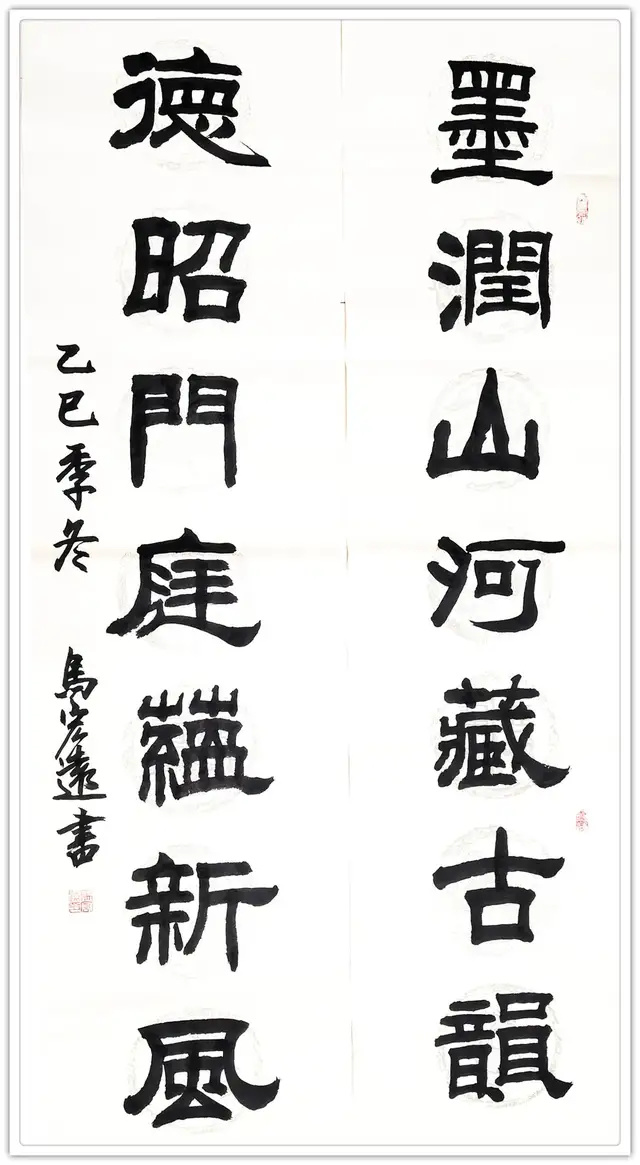 墨潤山河藏古韻
德昭門庭蘊新風
乙巳季冬
馬宏遠書